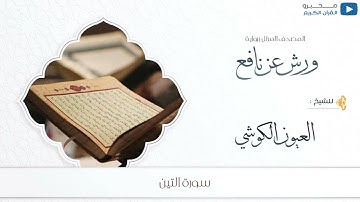 محبرو
القرآن الكريم
المصحف المنزل برواية
ورش عن نافع
للشيخ :
العيون الكوشي
سورة التين